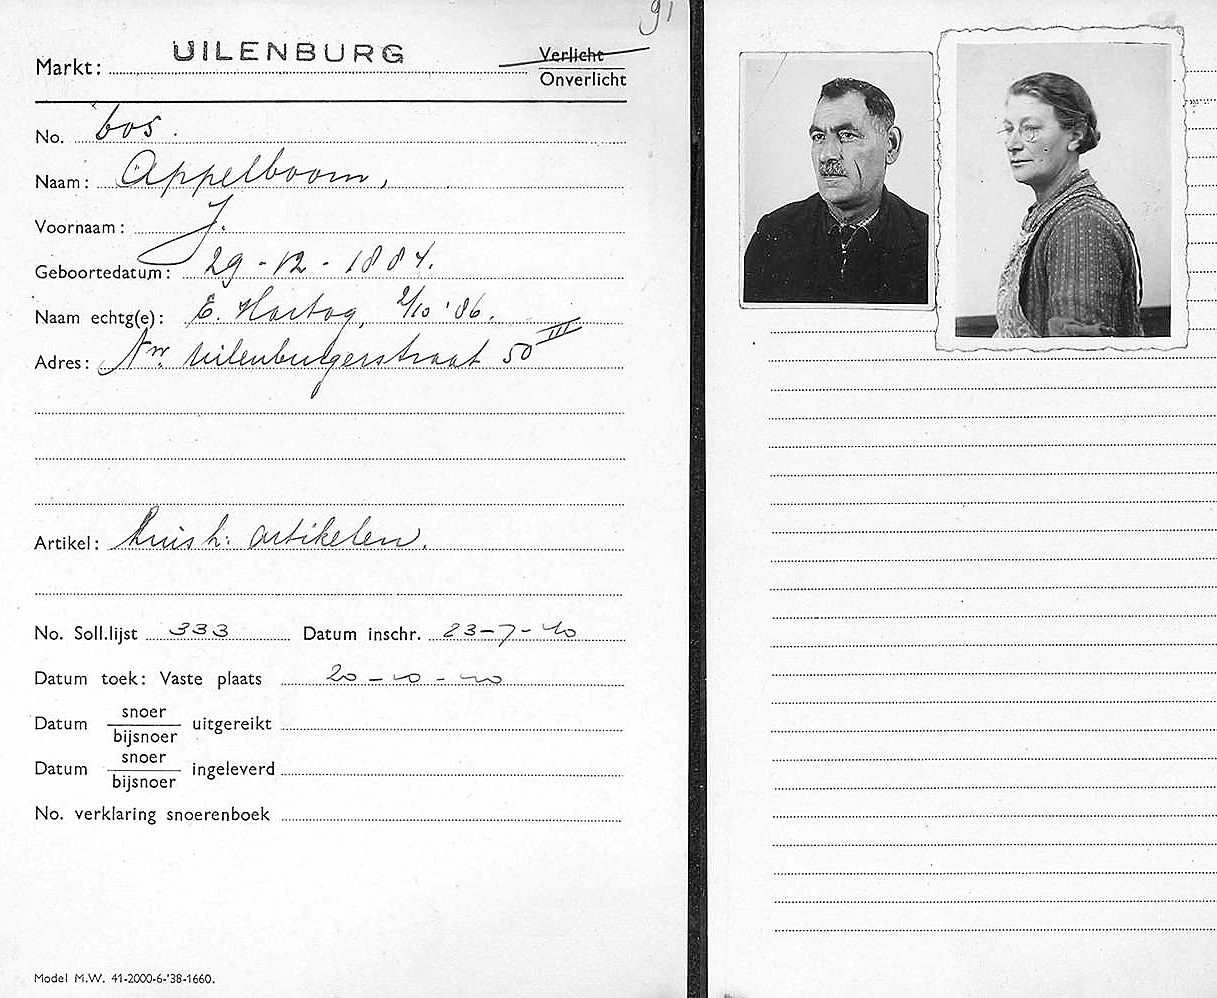 91
Markt: UILENBURG Verlicht
Onverlicht
No. 605.
Naam: Appelboom,
Voornaam: J.
Geboortedatum: 29-12-1884.
Naam echtg(e): E. Hartog, 2/10 '86.
Adres: Nw. Uilenburgerstraat 50 III
Artikel: huish. artikelen.
No. Soll.lijst 333 Datum inschr. 23-7-40
Datum toek: Vaste plaats 20-10-40
Datum snoer/bijsnoer uitgereikt
Datum snoer/bijsnoer ingeleverd
No. verklaring snoerenboek
Model M.W. 41-2000-6-'38-1660.